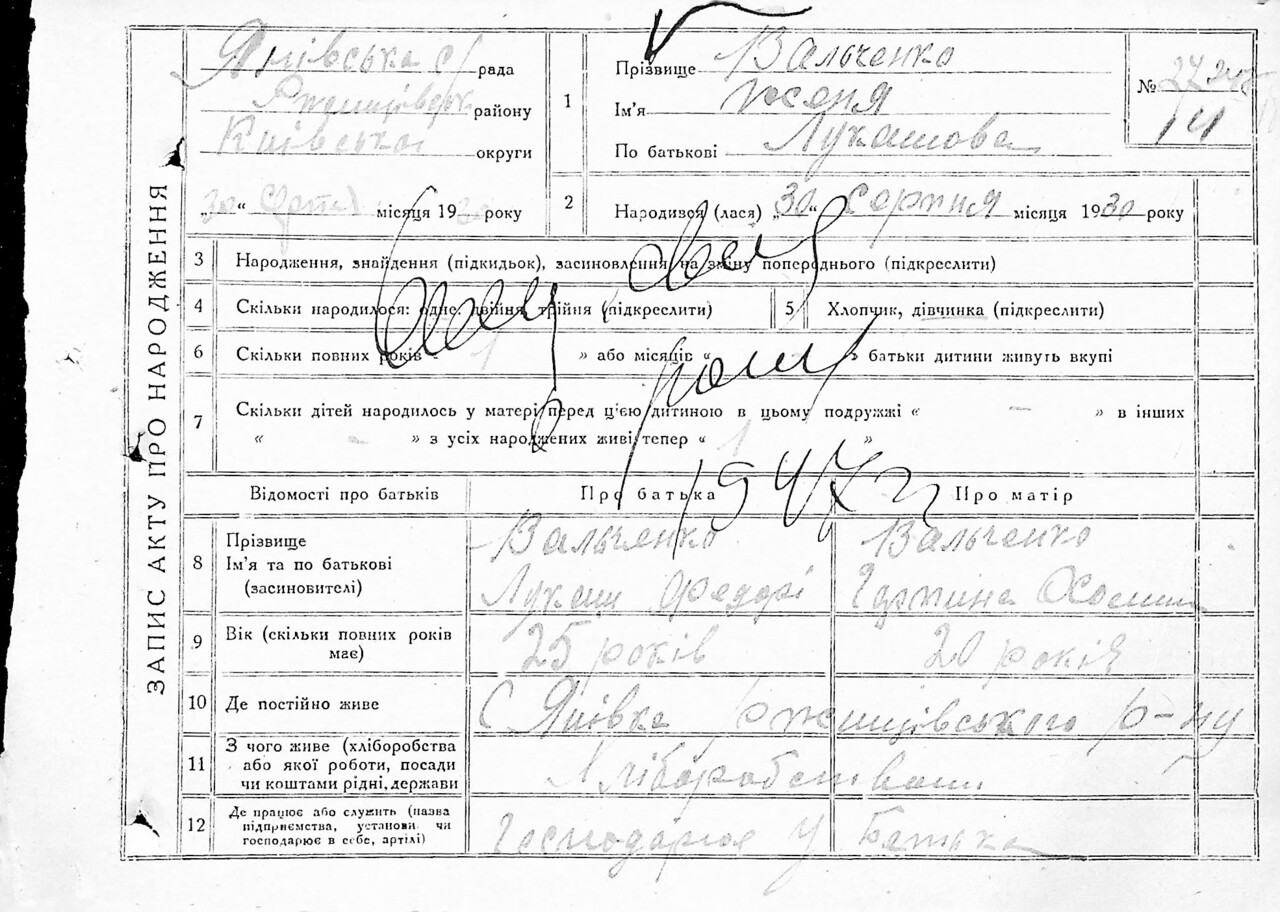 ЗАПИС АКТУ ПРО НАРОДЖЕННЯ
Янівська с/рада
Ржищівськ району
Київська округи
„30“ місяця 1930 року
1
Прізвище Вальченко
Ім'я Женя
По батькові Лукашова
№ 27
14
2
Народився (лася) „30“ серпня місяця 1930 року
3
Народження, знайдення (підкидьок), засиновлення, на зміну попереднього (підкреслити)
4
Скільки народилося: одне, двійня, трійня (підкреслити)
5
Хлопчик, дівчинка (підкреслити)
6
Скільки повних років „ 1 » або місяців “ » батьки дитини живуть вкупі
7
Скільки дітей народилось у матері перед ц'єю дитиною в цьому подружжі “ — » в інших
“ — » з усіх народжених живі тепер “ 1 »
1947
Відомості про батьків
Про батька
Про матір
8
Прізвище
Ім'я та по батькові
(засинovителі)
Вальченко
Лукаш Федорі
Вальченко
Хомин
9
Вік (скільки повних років
має)
25 років
20 років
10
Де постійно живе
с Янівка Ржищівського р-ну
11
З чого живе (хліборобства
або якої роботи, посади
чи коштами рідні, держави
Хліборобством
12
Де працює або служить (назва
підприємства, установи чи
господарює в себе, артілі)
Господарює у Батька